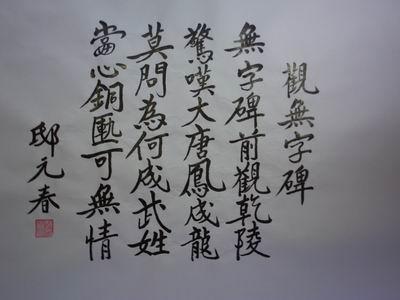 觀無字碑
無字碑前觀乾陵
驚嘆大唐鳳成龍
莫問為何成武姓
當心銅匭可無情
邸元春